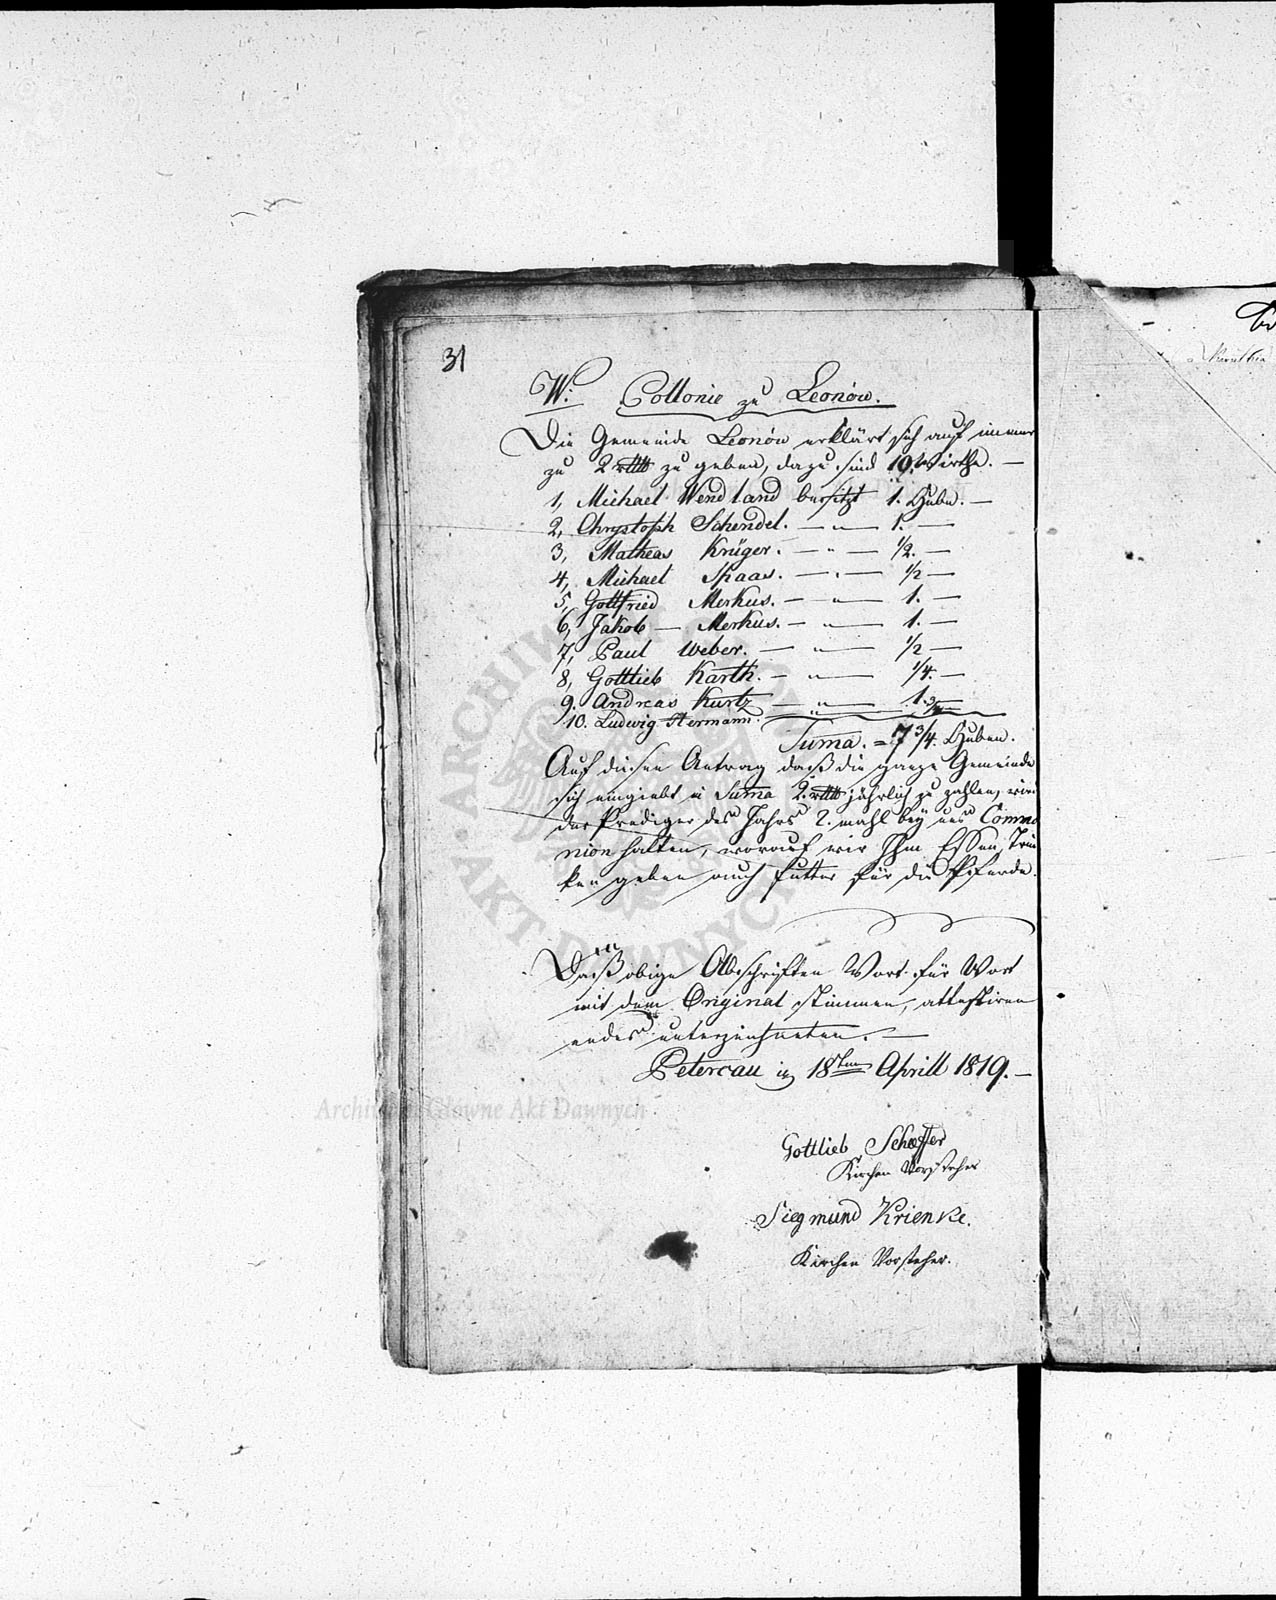 31
W. Collonie zu Leonów.
Die Gemeinde Leonów erklärt sich auf immer
zu 2 rttl zu geben, dazu sind 10 Wirthe. —
1, Michael Wendland besitzt 1. Hube. —
2, Chrystoph Schendel. — " — 1. —
3, Matheas Krüger. — " — 1/2. —
4, Michael Spaas. — " — 1/2 —
5, Gottfried Merkus. — " — 1. —
6, Jakob — Merkus. — " — 1. —
7, Paul Weber. — " — 1/2 —
8, Gottlieb Karth. — " — 1/4. —
9. Andreas Kurtz — " — 1.
10. Ludwig Hermann.
Suma. = 7 3/4. Huben.
Auf diesen Antrag daß die ganze Gemeinde
sich eingiebt in Suma 2. rttl jährlich zu zahlen, wird
der Prediger des Jahrs 2. mahl bey uns Commu
nion halten, worauf wir Ihm Essen, Trin
ken geben auch futter für die Pferde.
Daß obige Abschriften Wort für Wort
mit dem Original stimmen, attestiren
endes unterzeichneten. —
Petercau 18ten Aprill 1819. —
Gottlieb Scheffer
Kirchen Vorsteher
Siegmund Krienke.
Kirchen Vorsteher.
ARCHIWUM GŁÓWNE AKT DAWNYCH
Archiwum Główne Akt Dawnych